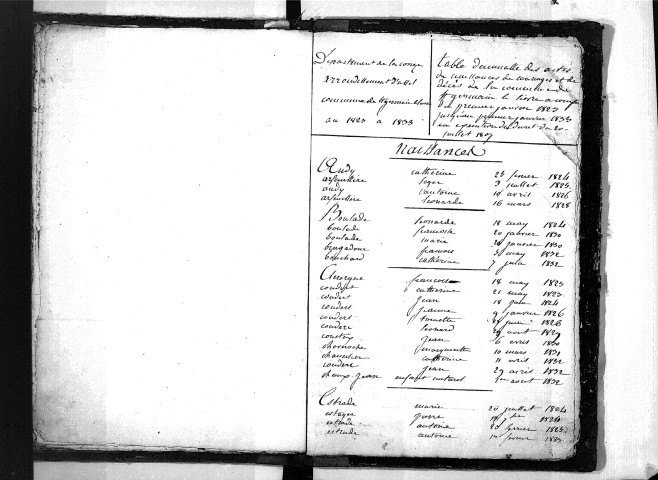 Département de la corrèze
arrondissement d'ussel
commune de st germain le lievre
au 1823 a 1833
table decennalle des actes
de naissances de mariages et de
décès de la commune de
st germain le lievre a compter
du premier janvier 1823
jusqu'au premier janvier 1833
en execution du decret du 20
juillet 1807
Naissances
Audy catherine 26 fevrier 1824
arfeuillere leger 3 juillet 1825
audy antoine 10 avril 1826
arfeuillere leonarde 16 mars 1828
Boulade leonarde 18 may 1824
boulade françoise 20 janvier 1830
boulade marie 20 janvier 1830
bougadour françois 30 may 1832
bouchard catherine 7 juin 1832
françois 18 may 1823
coudert catherine 21 may 1823
couders jean 18 juin 1824
couders jeanne 9 janvier 1826
couders juin 1826
coudere leonard 29 aout 1829
jean 6 avril 1830
marguerite 10 mars 1831
catherine 11 avril 1832
coudere jean 29 avril 1832
enfant naturel 1er aout 1832
Estrade marie 20 juillet 1824
1824
estrade antoine 20 fevrier 1825
estrade antoine fevrier